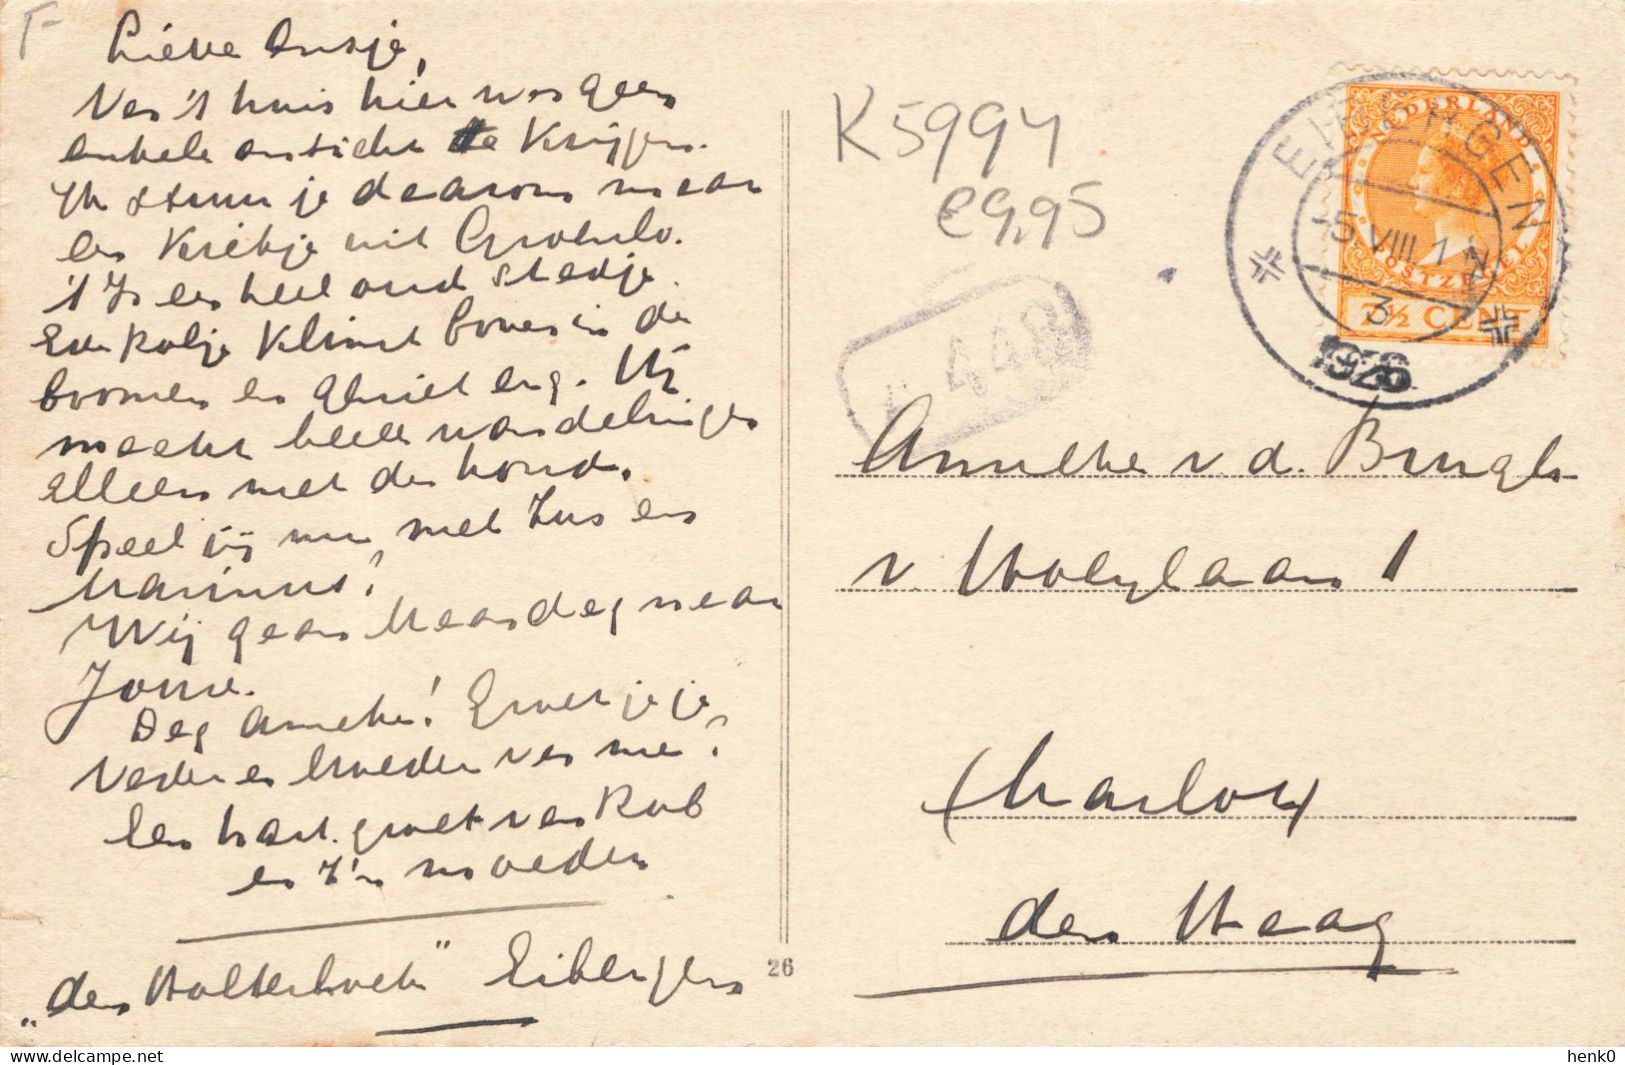 Lieve Ansje,
Van 't huis hier was geen
enkele ansicht te krijgen.
Ik stuur je daarom maar
een Kiekje uit Groenlo.
't Is een heel oud stadje.
Een klimt boven in de
boomen en geniet erg. Hij
maakt heele wandelingen
alleen met de hond.
Speel jij nu met Zus en
Marinus?
Wij gaan Maandag naar
Dag Anneke! Groet je je
Vader en Moeder van me?
Een hart. groet van Rob
en z'n moeder
„den Holterhoek" Eibergen
26
K5994
€9,95
448
EIBERGEN
5 VIII 1
3
1926
NEDERLAND
POSTZEGEL
7½ CENT
Anneke v. d. Brugh
v. Hoeylaan 1
Charlois
den Haag
henk0